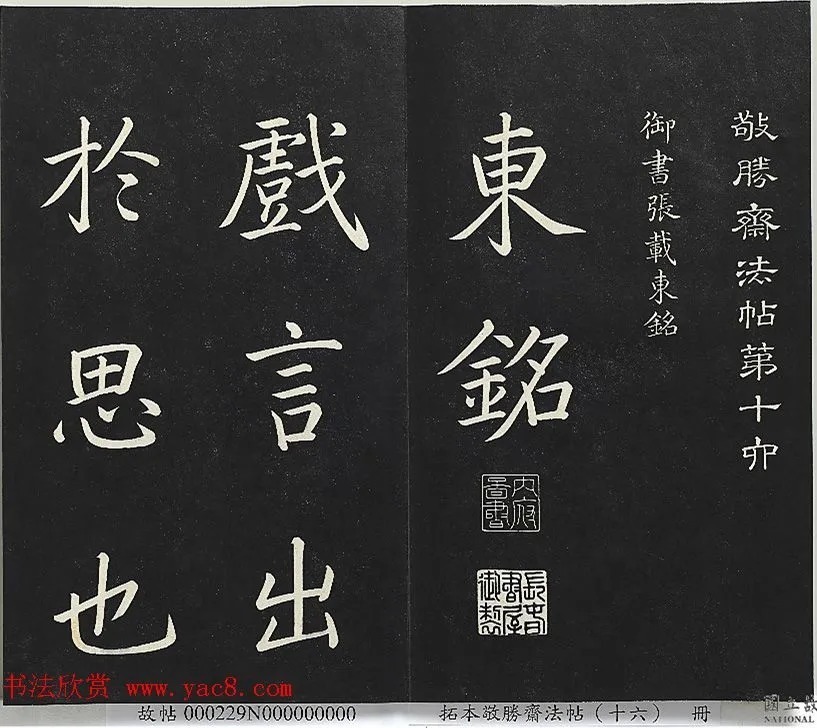 敬勝齋法帖第十六
御書張載東銘
東銘
戲言出
於思也
長春書屋
御製
書法欣賞 www.yac8.com
故帖 000229N000000000
拓本敬勝齋法帖（十六） 冊
國立故
NATIONAL